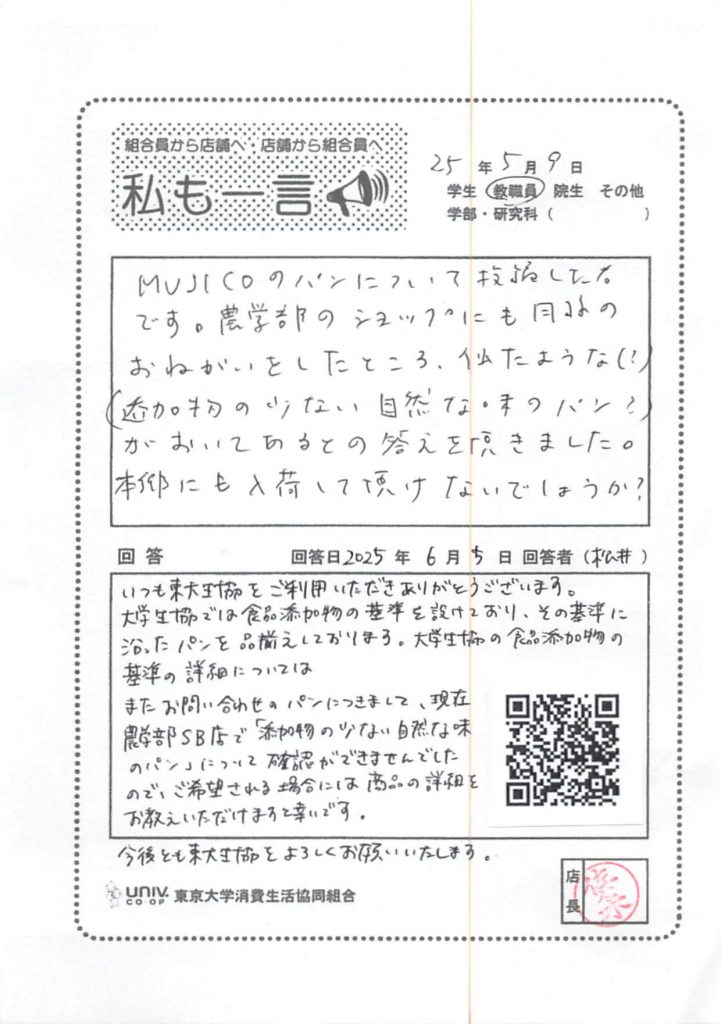 組合員から店舗へ・店舗から組合員へ
私も一言
25年5月9日
学生 教職員 院生 その他
学部・研究科（　　　）
MUJICOのパンについて投稿した者
です。農学部のショップにも同様の
おねがいをしたところ、似たような(?)
(添加物の少ない自然な味のパン?)
がおいてあるとの答えを頂きました。
本郷にも入荷して頂けないでしょうか?
回答 回答日2025年6月5日 回答者（松井）
いつも東大生協をご利用いただきありがとうございます。
大学生協では食品添加物の基準を設けており、その基準に
沿ったパンを品揃えしております。大学生協の食品添加物の
基準の詳細については
またお問い合わせのパンにつきまして、現在
農学部SB店で「添加物の少ない自然な味
のパン」について確認ができませんでした
ので、ご希望される場合には商品の詳細を
お教えいただけますと幸いです。
今後とも東大生協をよろしくお願いいたします。
UNIV. CO-OP 東京大学消費生活協同組合
店長